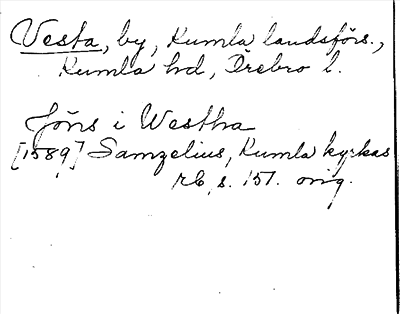 Vesta, by, Kumla landsförs.,
Kumla hd, Örebro l.
Jöns i Westha
[1589] Samzelius, Kumla kyrkas
rb, s. 151. orig.